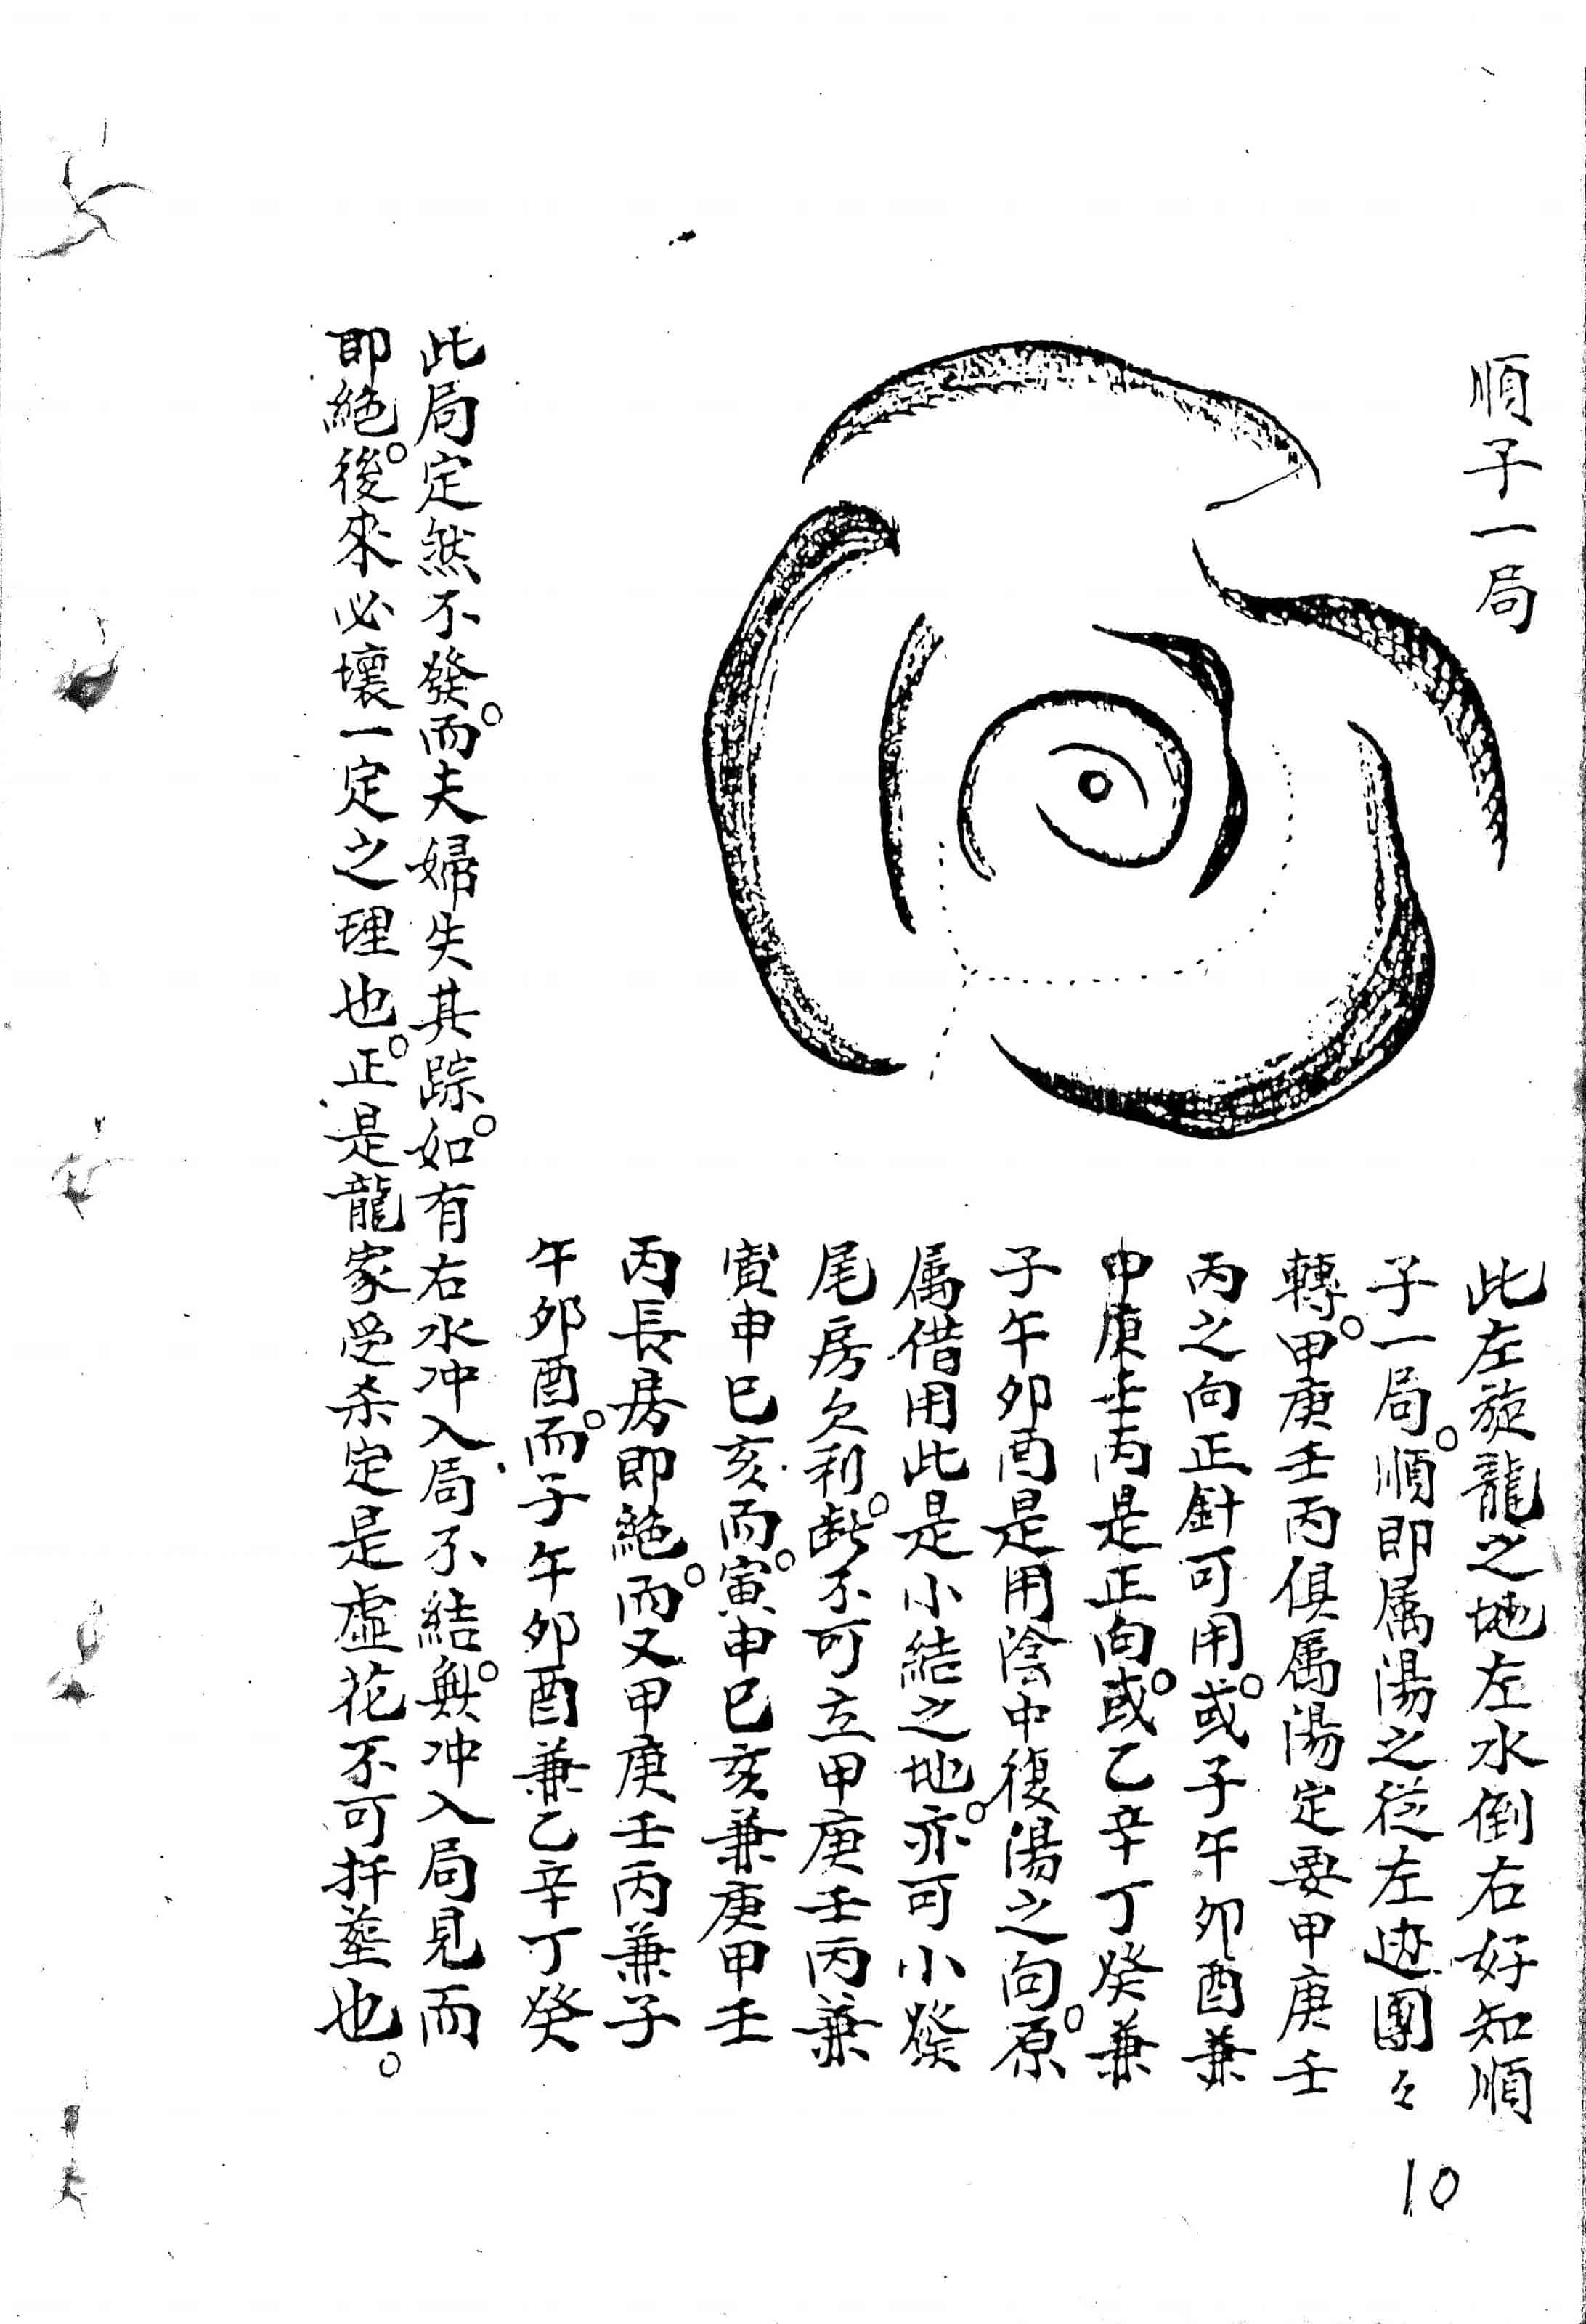 順子一局
此左旋龍之地左水倒右好知順
子一局。順即属湯之從左迊團々
轉。甲庚壬丙俱属湯定要甲庚壬
丙之向正針可用。或子午卯酉兼
甲庚壬丙是正向。或乙辛丁癸兼
子午卯酉是用陰中復湯之向。原
属借用此是小結之地。亦可小發
尾房欠利。断不可立甲庚壬丙兼
寅申巳亥而。寅申巳亥兼庚甲壬
丙長房即絕。而又甲庚壬丙兼子
午卯酉。而子午卯酉兼乙辛丁癸
此局定然不發。而夫婦失其踪。如有右水冲入局不結。無冲入局見而
即絕。後來必壞一定之理也。正是龍家受杀定是虛花不可扦塟也。
10